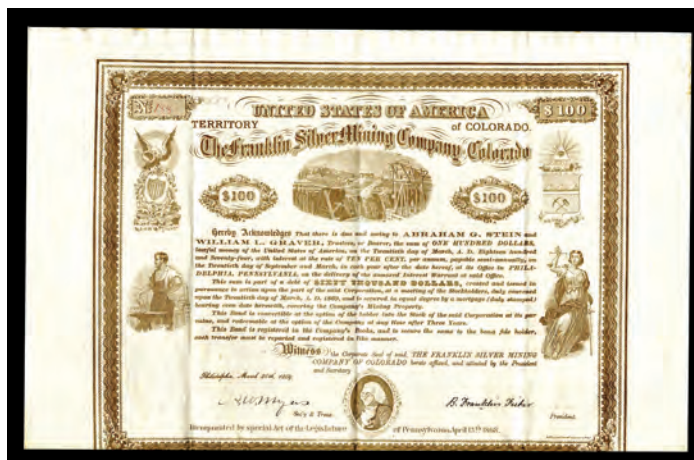 No.
$100
UNITED STATES OF AMERICA
TERRITORY of COLORADO.
The Franklin Silver Mining Company of Colorado
$100 $100
Hereby Acknowledges That there is due and owing to ABRAHAM G. STEIN and
WILLIAM L. GRAVER, Trustees, or Bearer, the sum of ONE HUNDRED DOLLARS,
lawful money of the United States of America, on the Twentieth day of March, A. D. Eighteen hundred
and Seventy-four, with interest at the rate of TEN PER CENT. per annum, payable semi-annually, on
the Twentieth day of September and March, in each year after the date hereof, at its Office in PHILA-
DELPHIA, PENNSYLVANIA, on the delivery of the annexed Interest Warrant at said Office.
This sum is part of a debt of SIXTY THOUSAND DOLLARS, created and issued in
pursuance to action upon the part of the said Corporation, at a meeting of the Stockholders, duly convened
upon the Twentieth day of March, A. D. 1869, and is secured in equal degree by a mortgage (duly stamped)
bearing even date herewith, covering the Company's Mining Property.
This Bond is convertible at the option of the holder into the Stock of the said Corporation at its par
value, and redeemable at the option of the Company at any time after Three Years.
This Bond is registered in the Company's Books, and to secure the same to the bona fide holder,
each transfer must be reported and registered in like manner.
Witness the Corporate Seal of said, THE FRANKLIN SILVER MINING
COMPANY OF COLORADO hereto affixed, and attested by the President
and Secretary.
Philadelphia March 20th 1869
Myers
B. Franklin Fisher
Sec'y & Treas.
President.
Incorporated by special Act of the Legislature of Pennsylvania, April 13th 1868.